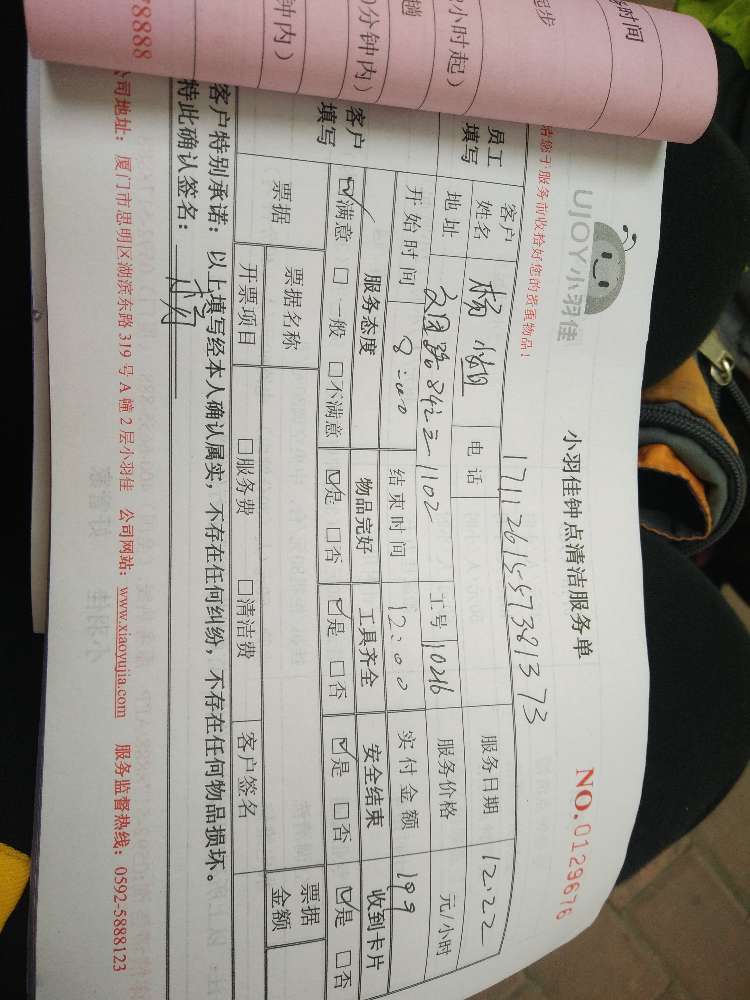 时间
起步
小时起)
趟
0分钟内)
钟内)
78888
UJOY小羽佳
小羽佳钟点清洁服务单
NO.0129676
请您于服务前收拾好您的贵重物品!
1711261557381373
员工填写
客户姓名 杨小姐 电话 服务日期 12.22
地址 文园路84之二1102 工号 10216 服务价格 元/小时
开始时间 8:00 结束时间 12:00 实付金额 199
客户填写
服务态度 物品完好 工具齐全 安全结束 收到卡片
☑满意 □一般 □不满意 ☑是 □否 ☑是 □否 ☑是 □否 ☑是 □否
票据 票据名称 □服务费 □清洁费 客户签名 票据金额
开票项目
客户特别承诺:以上填写经本人确认属实,不存在任何纠纷,不存在任何物品损坏。
特此确认签名:
公司地址:厦门市思明区湖滨东路 319 号 A 幢 2 层小羽佳 公司网站:www.xiaoyujia.com 服务监督热线:0592-5888123